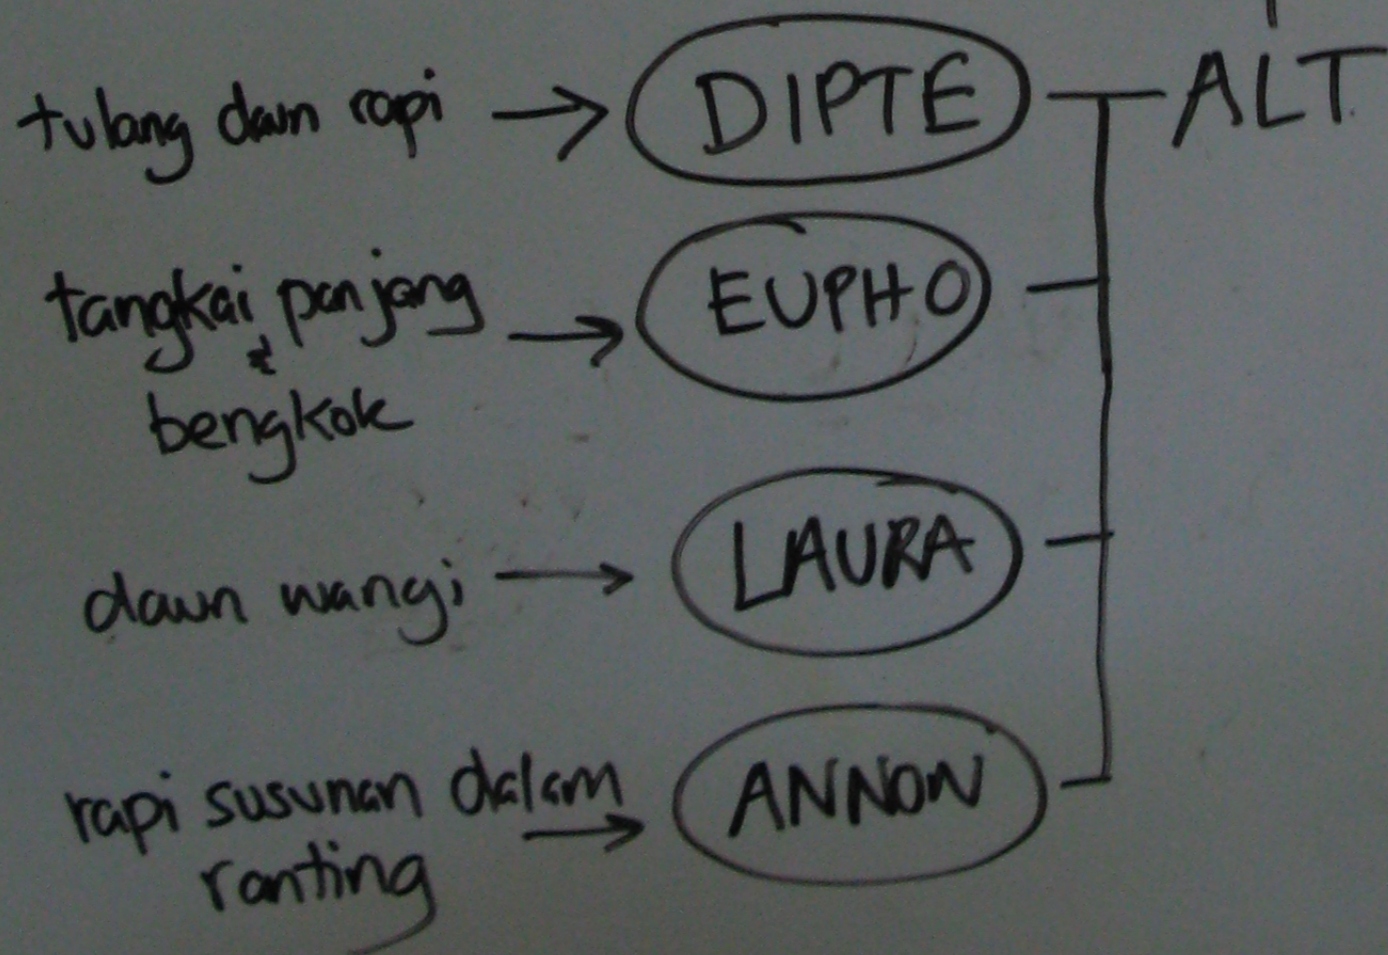 tulang daun rapi → DIPTE ALT
tangkai panjang
&
bengkok → EUPHO
daun wangi → LAURA
rapi susunan dalam
ranting → ANNON